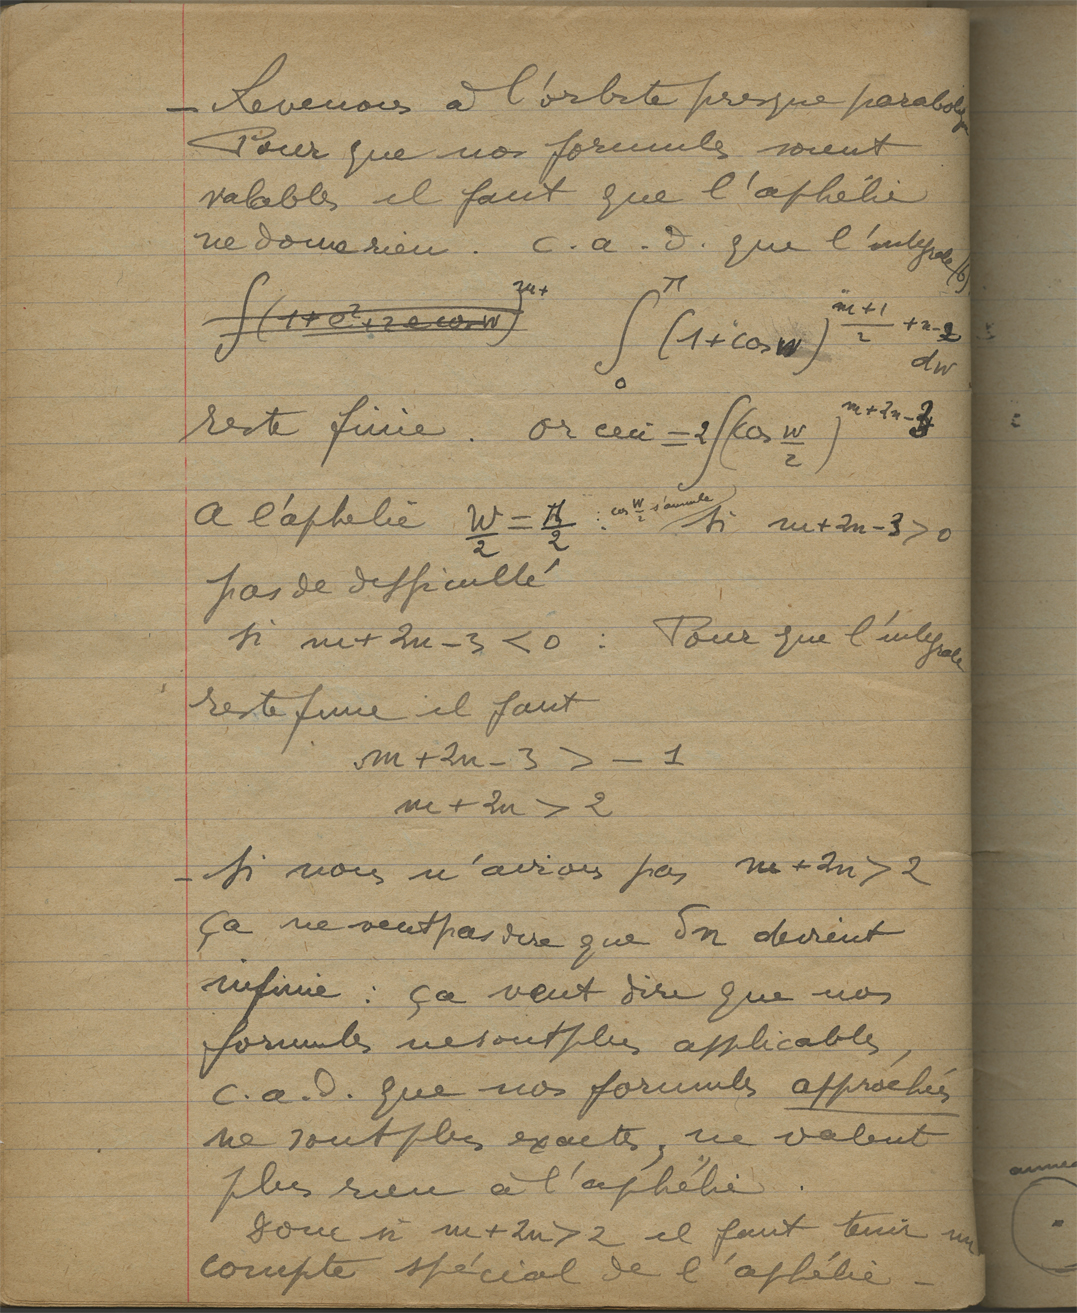 - Revenons à l'orbite presque parabolique
Pour que nos formules soient
valables il faut que l'aphélie
ne donne rien. c.a.d. que l'intégrale
∫(1+e²+2e cos w)^{m+ ∫_0^π (1+cos w)^{\frac{m+1}{2}+n-2} dw
reste finie. or ceci = 2∫(cos \frac{w}{2})^{m+2n-3}
A l'aphélie \frac{w}{2} = \frac{π}{2} : cos \frac{w}{2} s'annule Si m+2n-3>0
pas de difficulté
Si m+2n-3<0 : Pour que l'intégrale
reste finie il faut
m+2n-3 > -1
m+2n > 2
- Si nous n'avions pas m+2n>2
ça ne veut pas dire que δn devient
infinie : ça veut dire que nos
formules ne sont plus applicables,
c.a.d. que nos formules approchées
ne sont plus exactes, ne valent
plus rien à l'aphélie.
Donc si m+2n>2 il faut tenir un
compte spécial de l'aphélie -